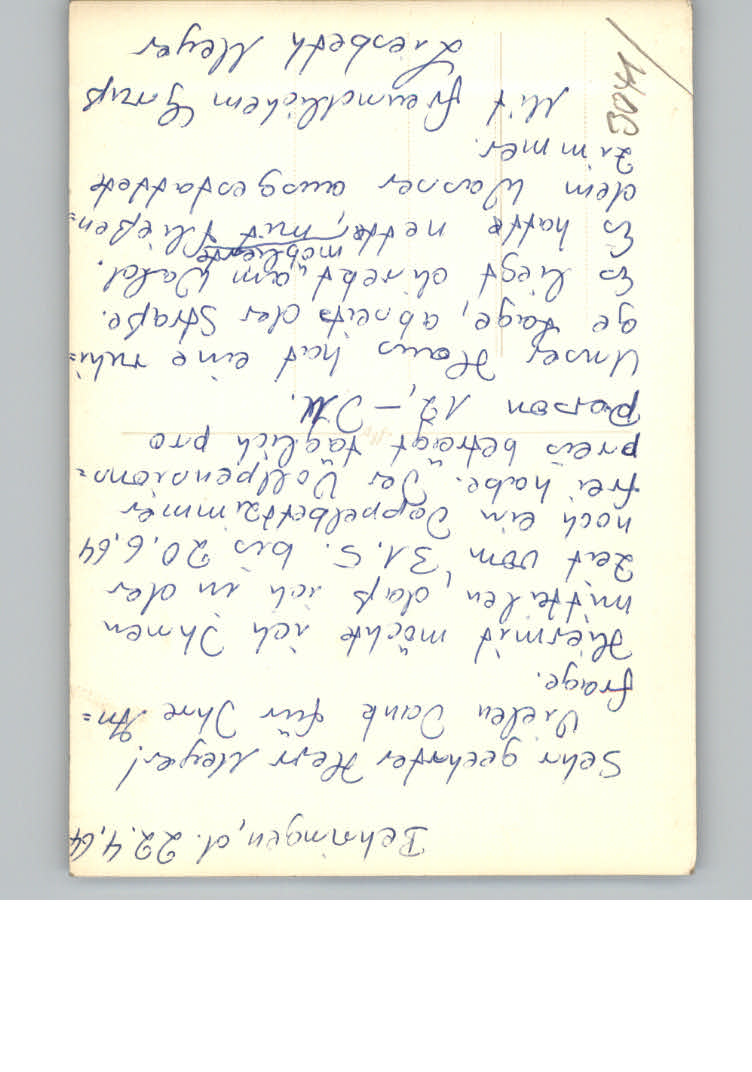 Behringen, d. 22.4.64
Sehr geehrter Herr Meyer!
Vielen Dank für Ihre An=
frage.
Hiermit möchte ich Ihnen
mitteilen, daß ich in der
Zeit vom 31.5. bis 20.6.64
noch ein Doppelbettzimmer
frei habe. Der Vollpensions=
preis beträgt täglich pro
Person 12,— DM.
Unser Haus hat eine ruhi=
ge Lage, abseits der Straße.
Es liegt direkt am Wald.
möblierte
Es hatte nette, mit fließen=
dem Wasser ausgestattete
Zimmer.
Mit freundlichem Gruß
Liesbeth Meyer
3041